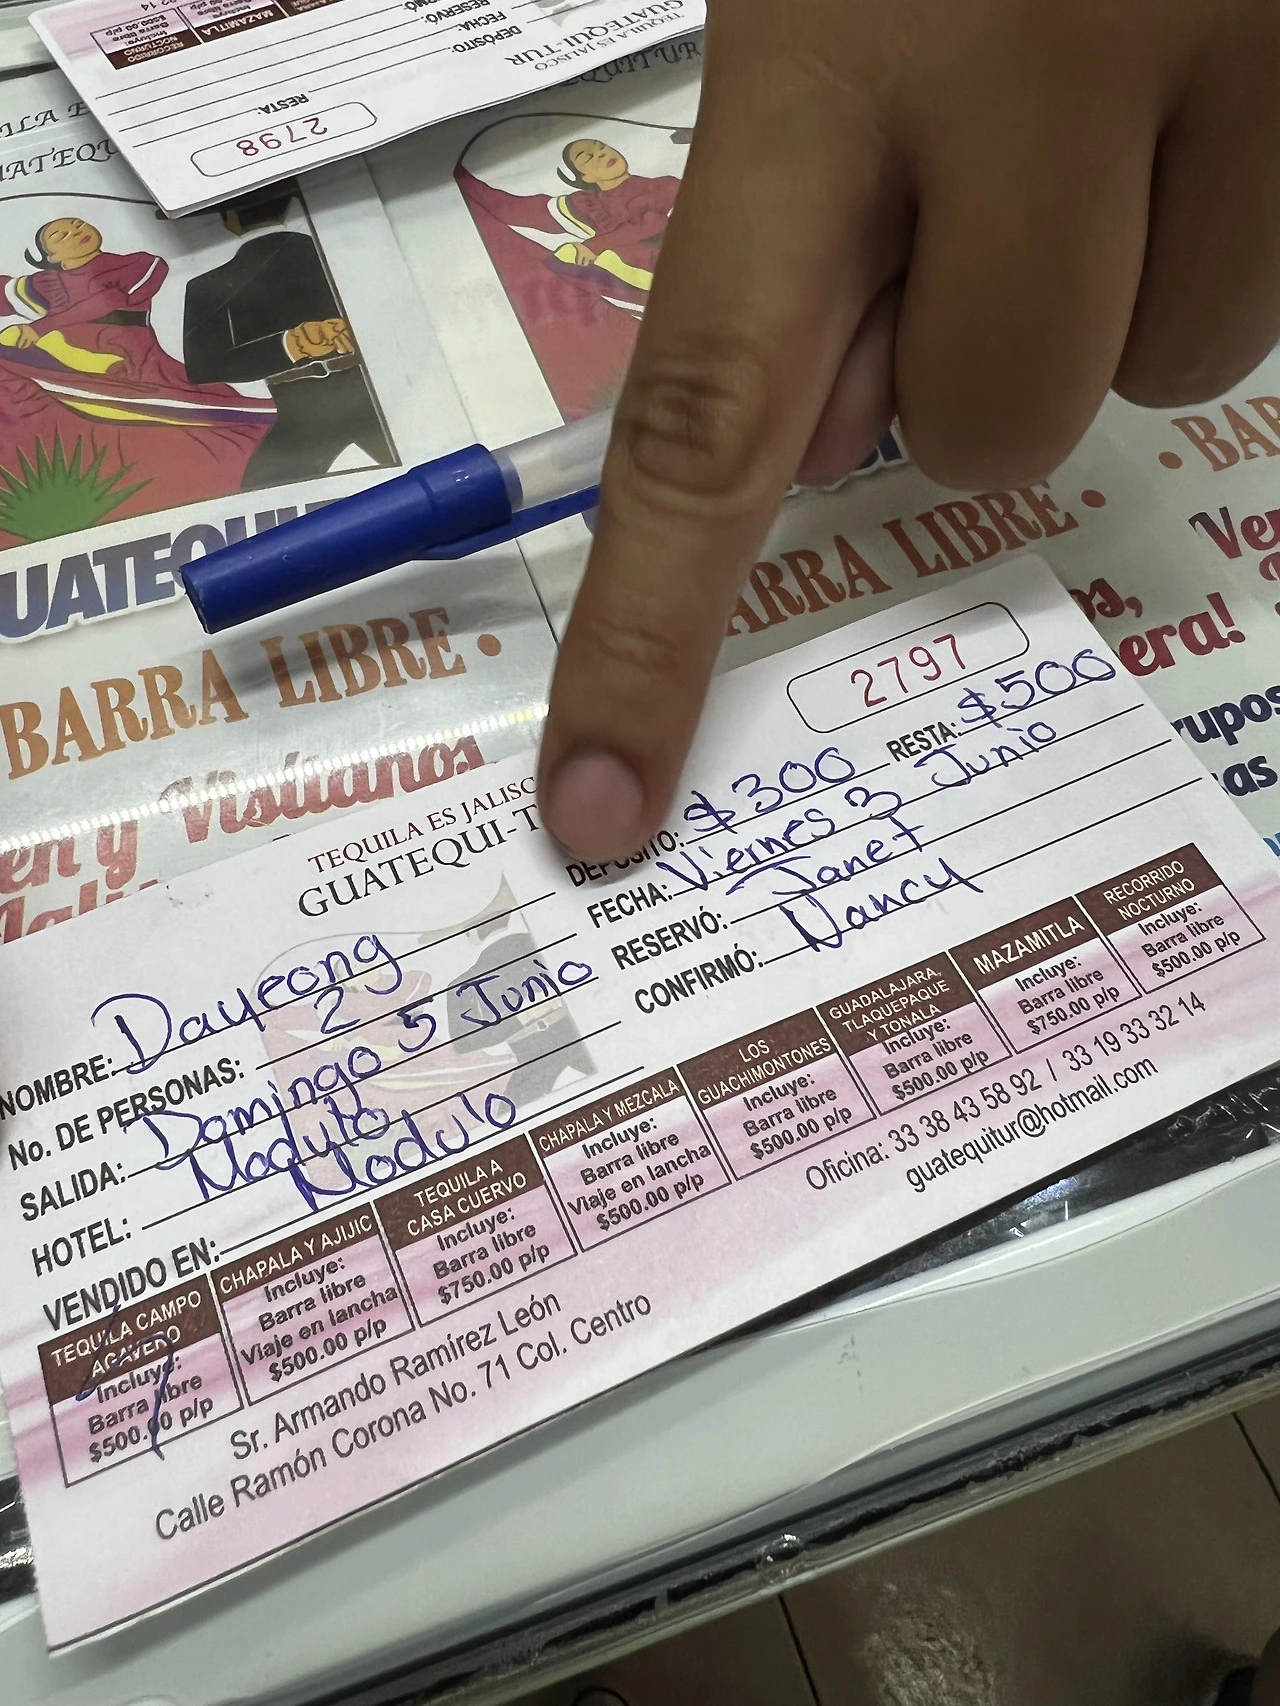 RECORRIDO
NOCTURNO
Incluye:
Barra libre
$500.00 p/p
MAZAMITLA
RESERVÓ:
FECHA:
DEPÓSITO:
RESTA:
TEQUILA ES JALISCO
GUATEQUI-TUR
2798
BARRA LIBRE •
BARRA LIBRE •
• BAR
Visítanos
2797
TEQUILA ES JALISC
GUATEQUI-T
DEPÓSITO: $300 RESTA: $500
FECHA: Viernes 3 Junio
RESERVÓ: Janet
CONFIRMÓ: Nancy
NOMBRE: Dayeong
No. DE PERSONAS: 2
SALIDA: Domingo 5 Junio
HOTEL: Modulo
VENDIDO EN: Modulo
TEQUILA CAMPO
AGAVERO
Incluye:
Barra libre
$500.00 p/p
CHAPALA Y AJIJIC
Incluye:
Barra libre
Viaje en lancha
$500.00 p/p
TEQUILA A
CASA CUERVO
Incluye:
Barra libre
$750.00 p/p
CHAPALA Y MEZCALA
Incluye:
Barra libre
Viaje en lancha
$500.00 p/p
LOS
GUACHIMONTONES
Incluye:
Barra libre
$500.00 p/p
GUADALAJARA,
TLAQUEPAQUE
Y TONALA
Incluye:
Barra libre
$500.00 p/p
MAZAMITLA
Incluye:
Barra libre
$750.00 p/p
RECORRIDO
NOCTURNO
Incluye:
Barra libre
$500.00 p/p
Sr. Armando Ramírez León
Calle Ramón Corona No. 71 Col. Centro
Oficina: 33 38 43 58 92 / 33 19 33 32 14
guatequitur@hotmail.com